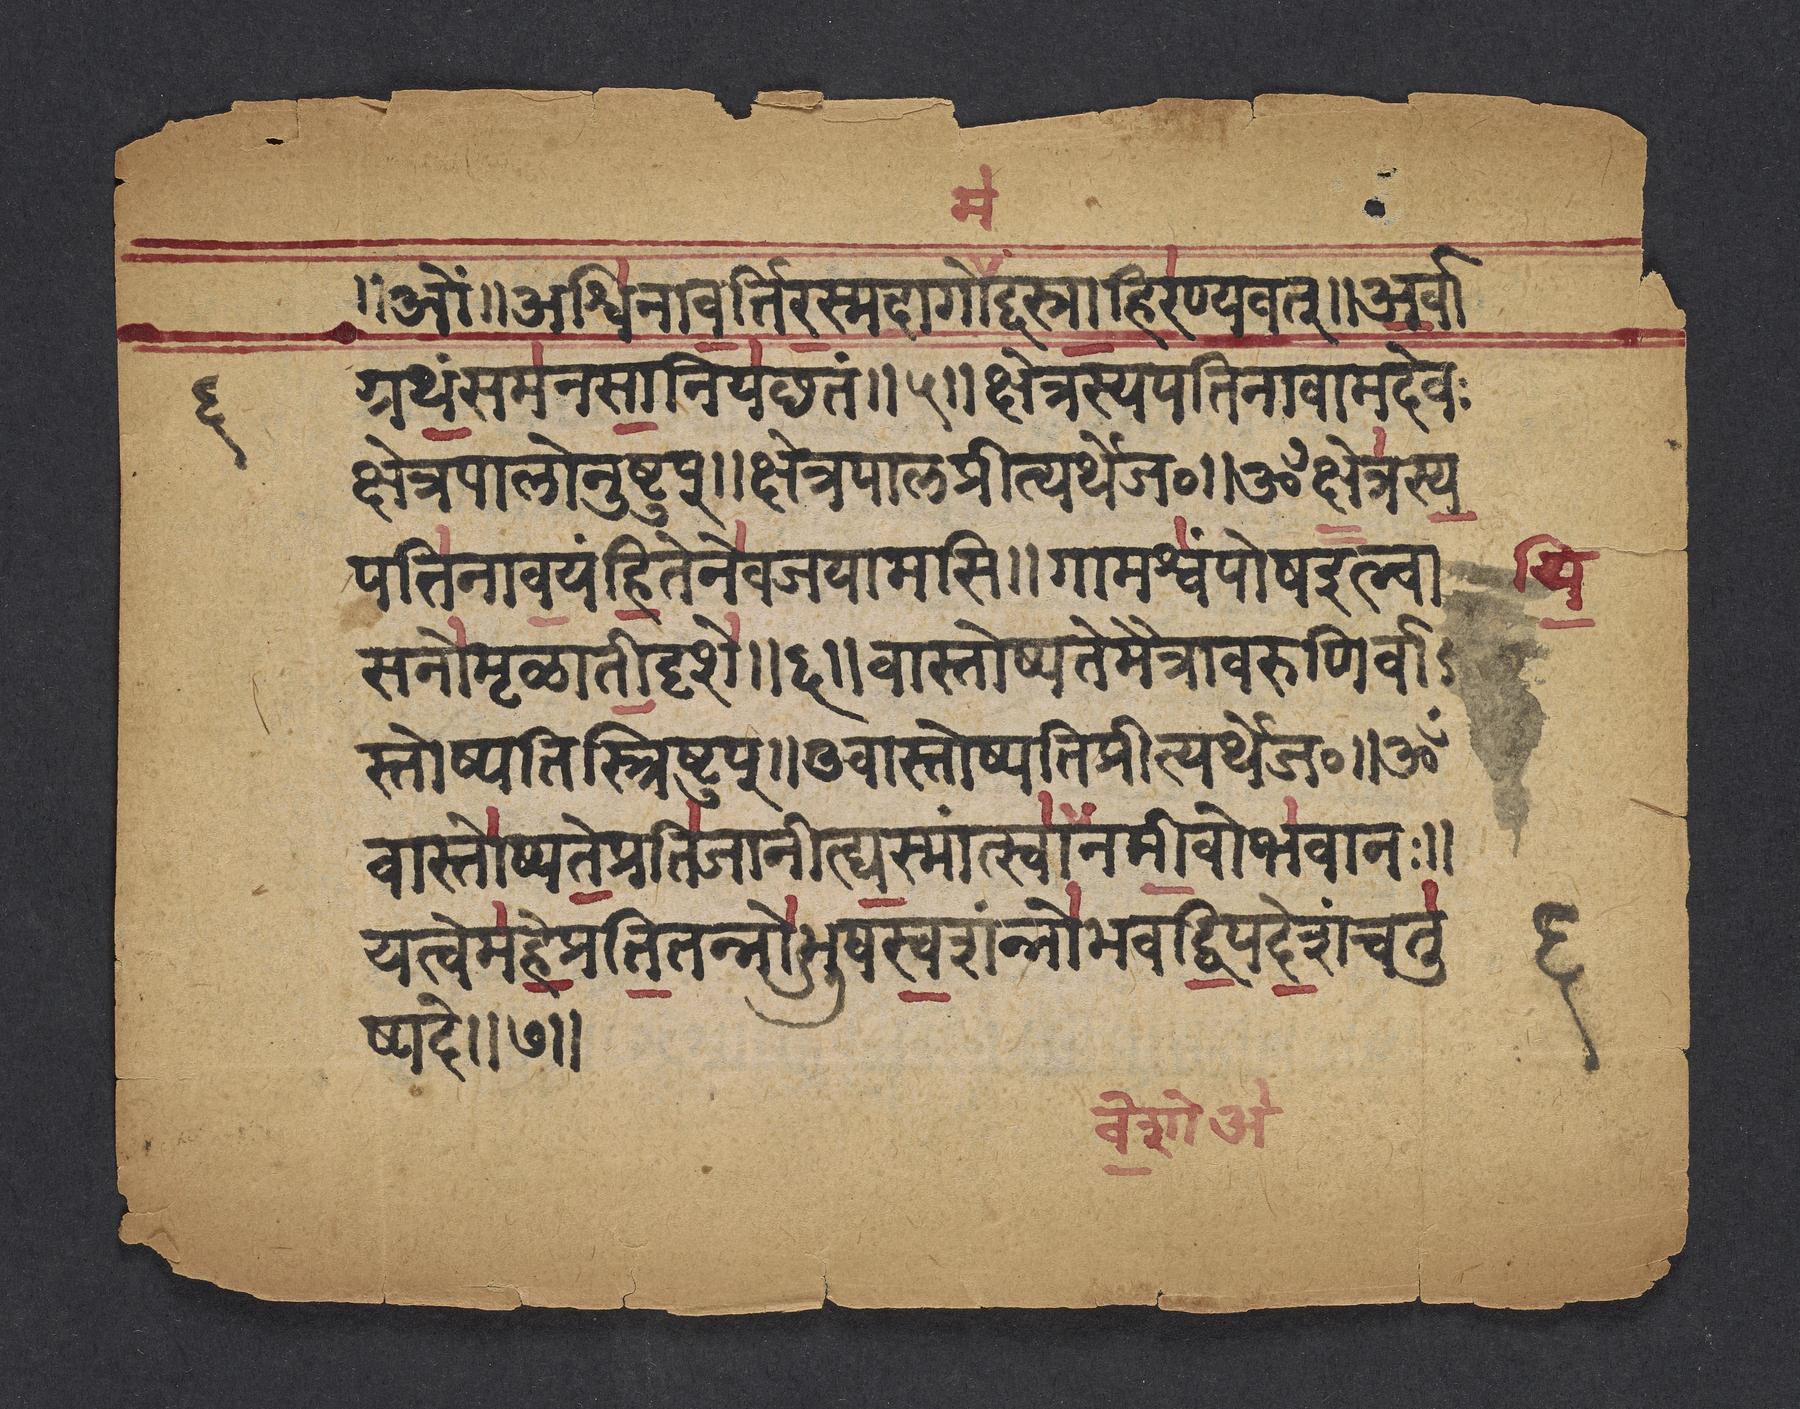 म
॥ओं॥अश्विनावर्त्तिरस्मदागोद्दस्त्राहिरण्यवत्॥अर्वा
ग्रथंसमनसानियछतं॥५॥क्षेत्रस्यपतिनावामदेवः
६
क्षेत्रपालोनुष्टुप्॥क्षेत्रपालप्रीत्यर्थेज०॥ॐक्षेत्रस्य
पतिनावयंहितेनेवजयामसि॥गामश्वंपोषइत्न्वा
सनोमृळातीदृशे॥६॥वास्तोष्पतेमैत्रावरुणिर्वा
स्तोष्पतिस्त्रिष्टुप्॥७वास्तोष्पतिप्रीत्यर्थेज०॥ॐ
वास्तोष्पतेप्रतिजानीत्ह्यस्मांत्स्वानमीवोभवानः॥
यत्वेमहेप्रतितन्नोभुषस्वशंन्नोभवद्विपदेशंचतु
६
ष्पदे॥७॥